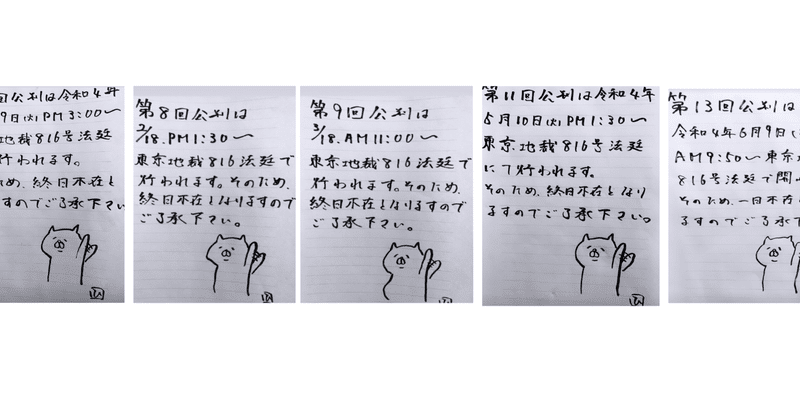 回公判は令和4年
9日(火)PM3:00〜
地裁816号法廷
行われます。
ため、終日不在と
すのでご了承下さい
第8回公判は
2/18.PM1:30〜
東京地裁816法廷で
行われます。そのため、
終日不在となりますので
ご了承下さい。
第9回公判は
3/18.AM11:00〜
東京地裁816法廷で
行われます。そのため、
終日不在となりますので
ご了承下さい。
第11回公判は令和4年
5月10日(火)PM1:30〜
東京地裁816号法廷
にて行われます。
そのため、終日不在となり
ますのでご了承下さい。
第13回公判は
令和4年6月9日(
AM9:50〜東京
816号法廷で開
そのため、一日不在
ますのでご了承下